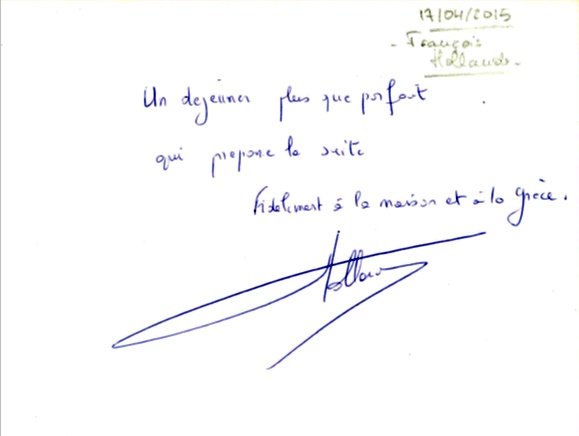 17/04/2015
- François
Hollande -
Un dejeuner plus que parfait
qui prepare la suite
Fidelement à la maison et à la Grèce.
Hollande